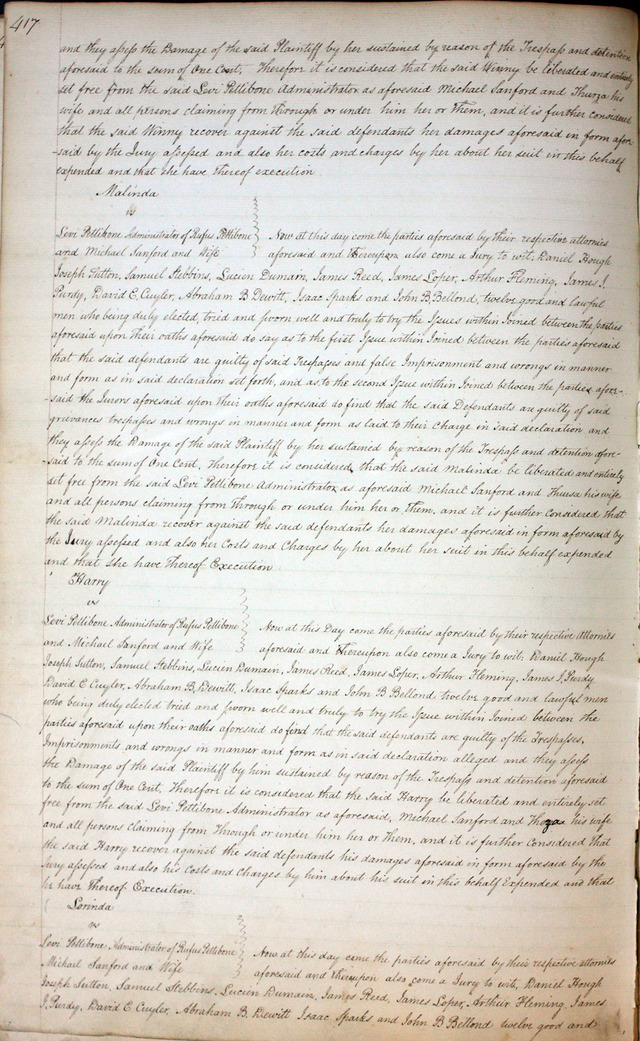 417
and they assess the Damage of the said Plaintiff by her sustained by reason of the Trespass and detention
aforesaid to the sum of One Cent. Therefore it is considered that the said Winny be liberated and entirely
set free from the said Levi Pettibone Administrator as aforesaid Michael Sanford and Thurza his
wife and all persons claiming from through or under him her or them, and it is further considered
that the said Winny recover against the said defendants her damages aforesaid in form afore
-said by the Jury assessed and also her costs and charges by her about her suit in this behalf
expended and that she have thereof execution
Malinda
vs
Levi Pettibone Administrator of Rufus Pettibone Now at this day come the parties aforesaid by their respective attornies
and Michael Sanford and Wife aforesaid and thereupon also come a Jury to wit; Daniel Hough
Joseph Sutton, Samuel Stebbins, Lucien Dumain, James Reed, James Loper, Arthur Fleming, James J.
Purdy, David E. Cuyler, Abraham B. Dewitt, Isaac Sparks and John B. Bellond, twelve good and lawful
men who being duly elected, tried and sworn well and truly to try the Issues within Joined between the parties
aforesaid upon their oaths aforesaid do say as to the first Issue within Joined between the parties aforesaid
that the said defendants are guilty of said Trespasses and false Imprisonment and wrongs in manner
and form as in said declaration set forth, and as to the second Issue within Joined between the parties afore-
said the Jurors aforesaid upon their oaths aforesaid do find that the said Defendants are guilty of said
grievances trespasses and wrongs in manner and form as laid to their charge in said declaration and
they assess the Damage of the said Plaintiff by her sustained by reason of the Trespass and detention afore-
-said to the sum of One Cent. Therefore it is considered that the said Malinda be liberated and entirely
set free from the said Levi Pettibone Administrator as aforesaid Michael Sanford and his wife
and all persons claiming from through or under him her or them, and it is further considered that
the said Malinda recover against the said defendants her damages aforesaid in form aforesaid by
the Jury assessed and also her Costs and Charges by her about her suit in this behalf expended
and that she have thereof Execution
Harry
vs
Levi Pettibone Administrator of Rufus Pettibone Now at this Day come the parties aforesaid by their respective attornies
and Michael Sanford and Wife aforesaid and thereupon also come a Jury to wit; Daniel Hough
Joseph Sutton, Samuel Stebbins, Lucien Dumain, James Reed, James Loper, Arthur Fleming, James J. Purdy
David E Cuyler, Abraham B. Dewitt, Isaac Sparks and John B. Bellond twelve good and lawful men
who being duly elected tried and sworn well and truly to try the Issue within Joined between the
parties aforesaid upon their oaths aforesaid do find that the said defendants are guilty of the Trespasses,
Imprisonments and wrongs in manner and form as in said declaration alleged and they assess
the Damage of the said Plaintiff by him sustained by reason of the Trespass and detention aforesaid
to the sum of One Cent. Therefore it is considered that the said Harry be liberated and entirety set
free from the said Levi Pettibone Administrator as aforesaid, Michael Sanford and his wife
and all persons claiming from through or under him her or them, and it is further Considered that
the said Harry recover against the said defendants his damages aforesaid in form aforesaid by the
Jury assessed and also his Costs and Charges by him about his suit in this behalf Expended and that
he have thereof Execution.
Lorinda
vs
Levi Pettibone Administrator of Rufus Pettibone Now at this day came the parties aforesaid by their respective attornies
Michael Sanford and Wife aforesaid and thereupon also come a Jury to wit, Daniel Hough
Joseph Sutton, Samuel Stebbins, Lucien Dumain, James Reed, James Loper, Arthur Fleming, James
J. Purdy, David E. Cuyler, Abraham B. Dewitt Isaac Sparks and John B Bellond twelve good and